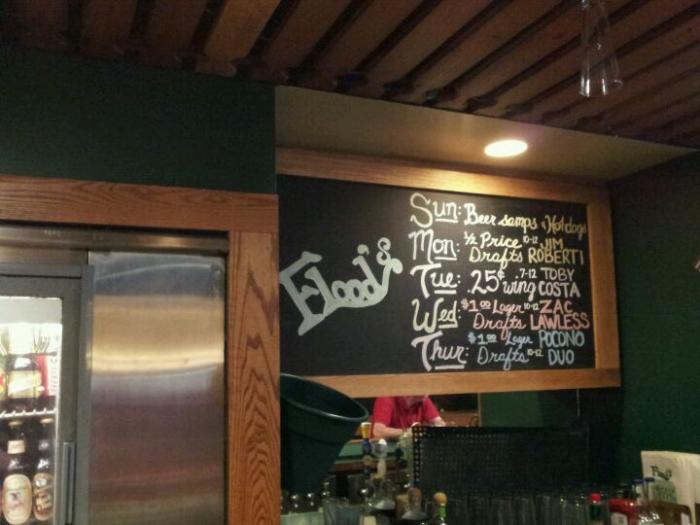 Flood's
Sun: Beer samps & Hotdogs
Mon: 1/2 Price Drafts 10-12 JIM ROBERTI
Tue: .25¢ wing 7-12 TOBY COSTA
Wed: $1.00 Lager Drafts 10-12 ZAC LAWLESS
Thur: $1.00 Lager Drafts 10-12 POCONO DUO
Flood's